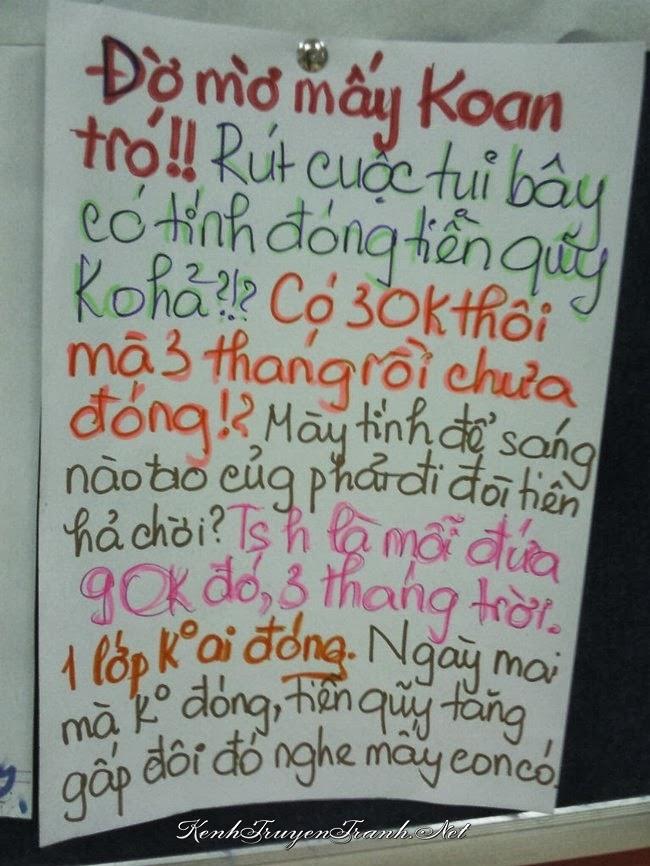 Đờ mờ mấy Koan
tró!! Rút cuộc tụi bây
có tính đóng tiền quỹ
Ko hả?!? Có 30K thôi
mà 3 tháng rồi chưa
đóng!? Mày tính để sáng
nào tao củg phải đi đòi tiền
hả chời? Ts h là mỗi đứa
90K đó, 3 tháng trời.
1 lớp k° ai đóng. Ngày mai
mà k° đóng, tiền quỹ tăng
gấp đôi đó nghe mấy con có.
KenhTruyenTranh.Net